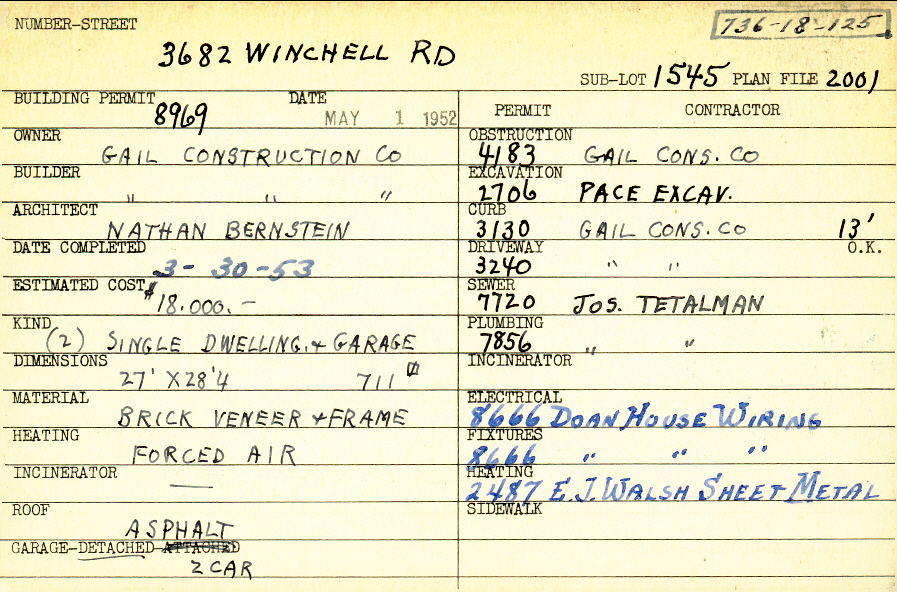 NUMBER-STREET
736-18-125
3682 WINCHELL RD
SUB-LOT 1545 PLAN FILE 2001
BUILDING PERMIT 8969 DATE MAY 1 1952
OWNER GAIL CONSTRUCTION CO
BUILDER " " "
ARCHITECT NATHAN BERNSTEIN
DATE COMPLETED 3-30-53
ESTIMATED COST $18.000.-
KIND (2) SINGLE DWELLING & GARAGE
DIMENSIONS 27' X 28'4 711
MATERIAL BRICK VENEER & FRAME
HEATING FORCED AIR
INCINERATOR —
ROOF ASPHALT
GARAGE-DETACHED-ATTACHED
2 CAR
PERMIT CONTRACTOR
OBSTRUCTION 4183 GAIL CONS. CO
EXCAVATION 2706 PACE EXCAV.
CURB 3130 GAIL CONS. CO 13'
O.K.
DRIVEWAY 3240 " "
SEWER 7720 JOS. TETALMAN
PLUMBING 7856 " "
INCINERATOR
ELECTRICAL 8666 DOAN HOUSE WIRING
FIXTURES 8666 " " "
HEATING 2487 E.J. WALSH SHEET METAL
SIDEWALK